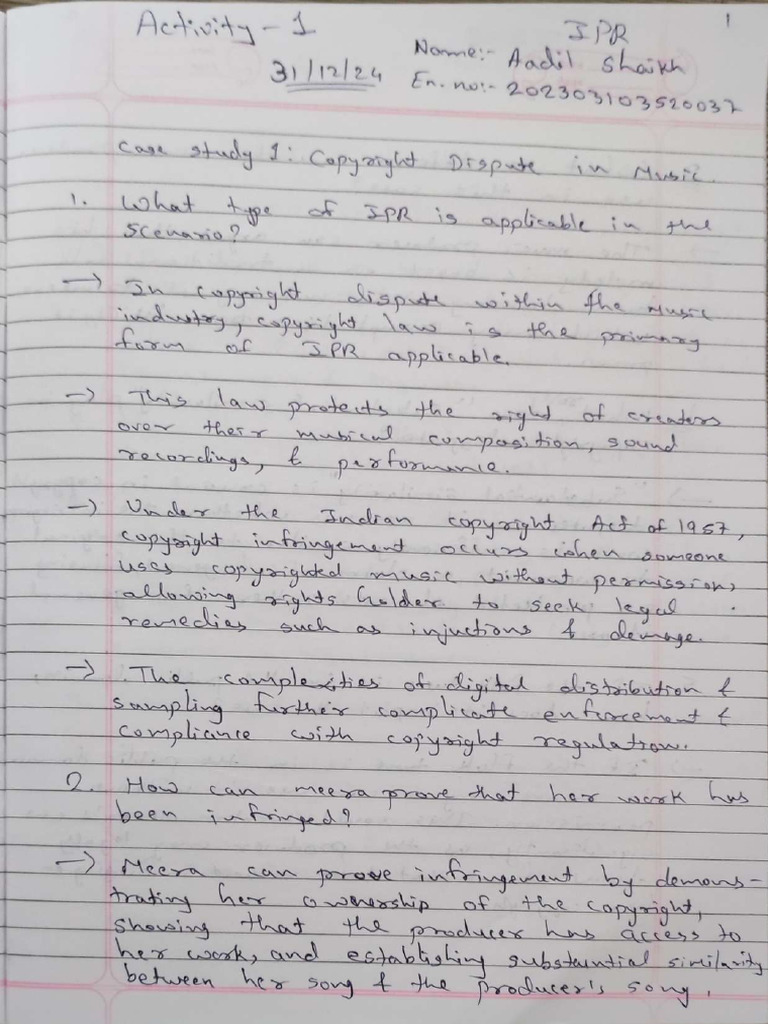 1
Activity - 1
IPR
31/12/24
Name:- Aadil Shaikh
En. no:- 202303103520037
Case study 1: Copyright Dispute in Music.
1. What type of IPR is applicable in the
scenario?
→ In copyright dispute within the music
industry, copyright law is the primary
form of IPR applicable.
→ This law protects the right of creators
over their musical composition, sound
recordings, & performance.
→ Under the Indian copyright Act of 1957,
copyright infringement occurs when someone
uses copyrighted music without permission,
allowing rights holder to seek legal
remedies such as injuctions & demage.
→ The complexities of digital distribution &
sampling further complicate enforcement &
compliance with copyright regulation.
2. How can meera prove that her work has
been infringed?
→ Meera can prove infringement by demons-
trating her ownership of the copyright,
showing that the producer has access to
her work, and establishing substantial similarity
between her song & the producer's song.